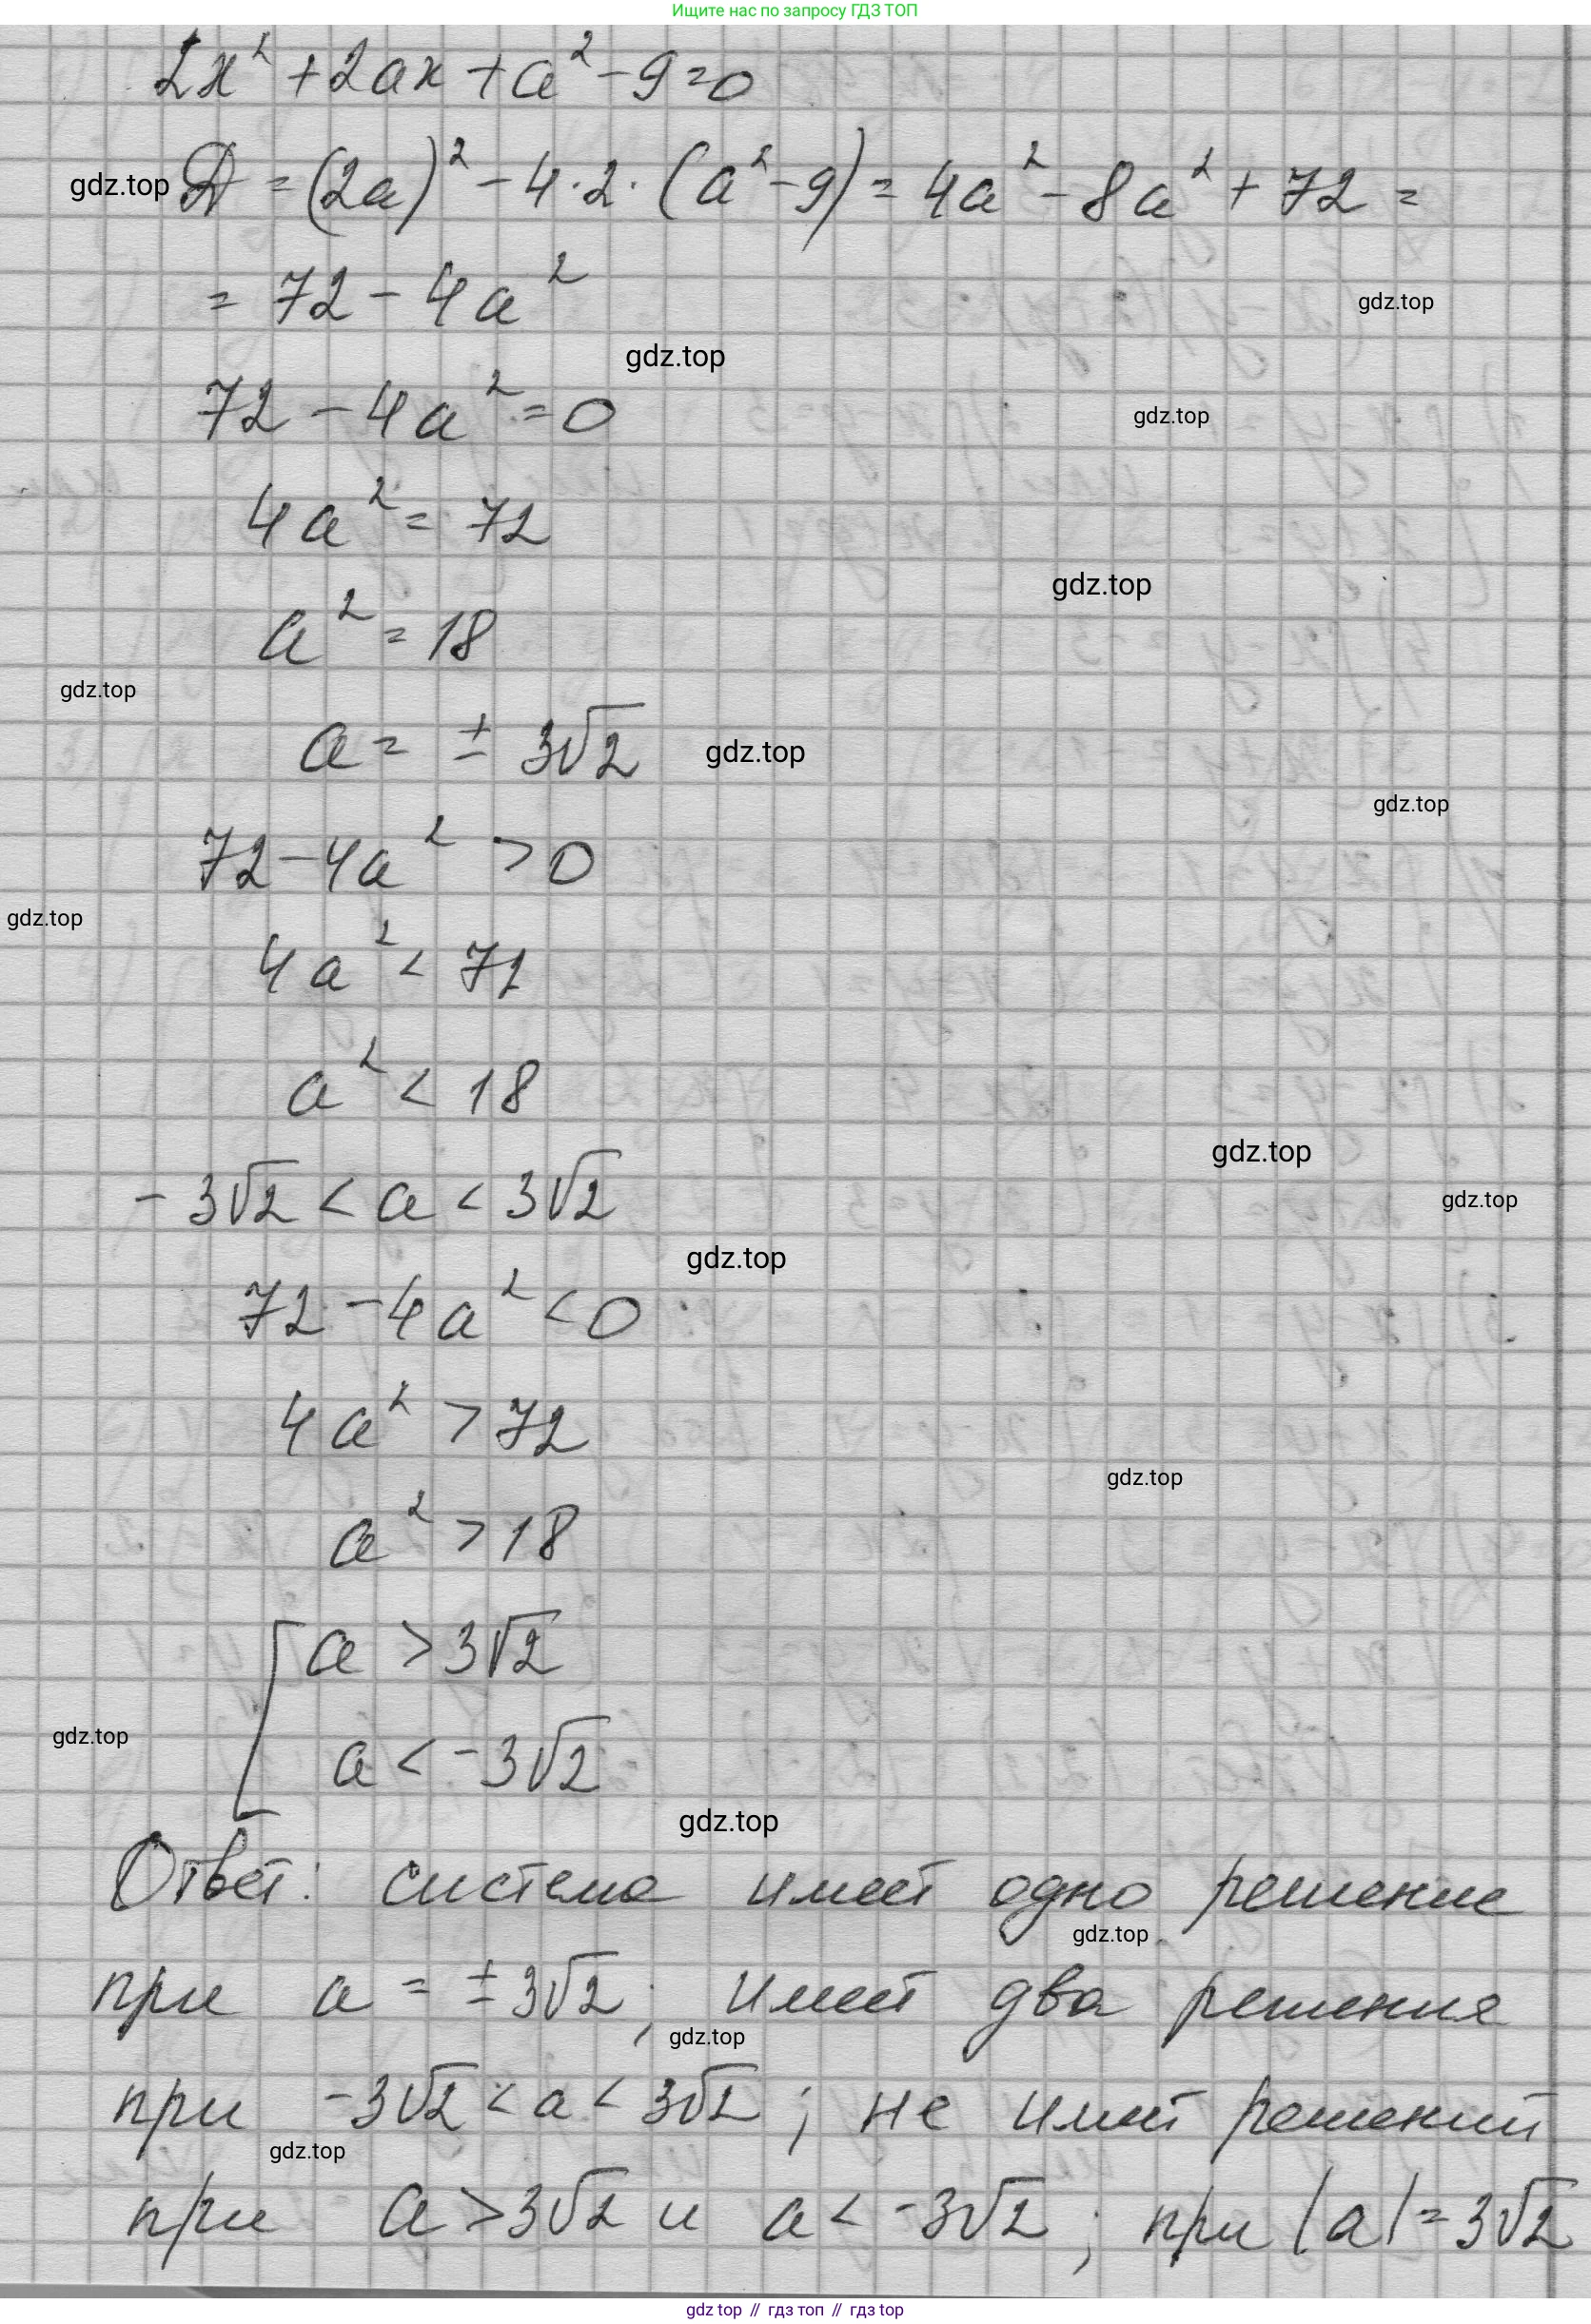 Ищите нас по запросу ГДЗ ТОП
2x² + 2ax + a² - 9 = 0
gdz.top D = (2a)² - 4·2·(a² - 9) = 4a² - 8a² + 72 =
= 72 - 4a²
gdz.top
gdz.top
72 - 4a² = 0
gdz.top
4a² = 72
gdz.top
a² = 18
gdz.top
a = ± 3√2 gdz.top
gdz.top
72 - 4a² > 0
gdz.top
4a² < 72
a² < 18
gdz.top
-3√2 < a < 3√2
gdz.top
gdz.top
72 - 4a² < 0
4a² > 72
gdz.top
a² > 18
[ a > 3√2
gdz.top
a < -3√2
gdz.top
Ответ: система имеет одно решение
gdz.top
при a = ±3√2; имеет два решения
gdz.top
при -3√2 < a < 3√2; не имеет решений
gdz.top
при a > 3√2 и a < -3√2; при |a| = 3√2
gdz top // гдз топ // гдз top